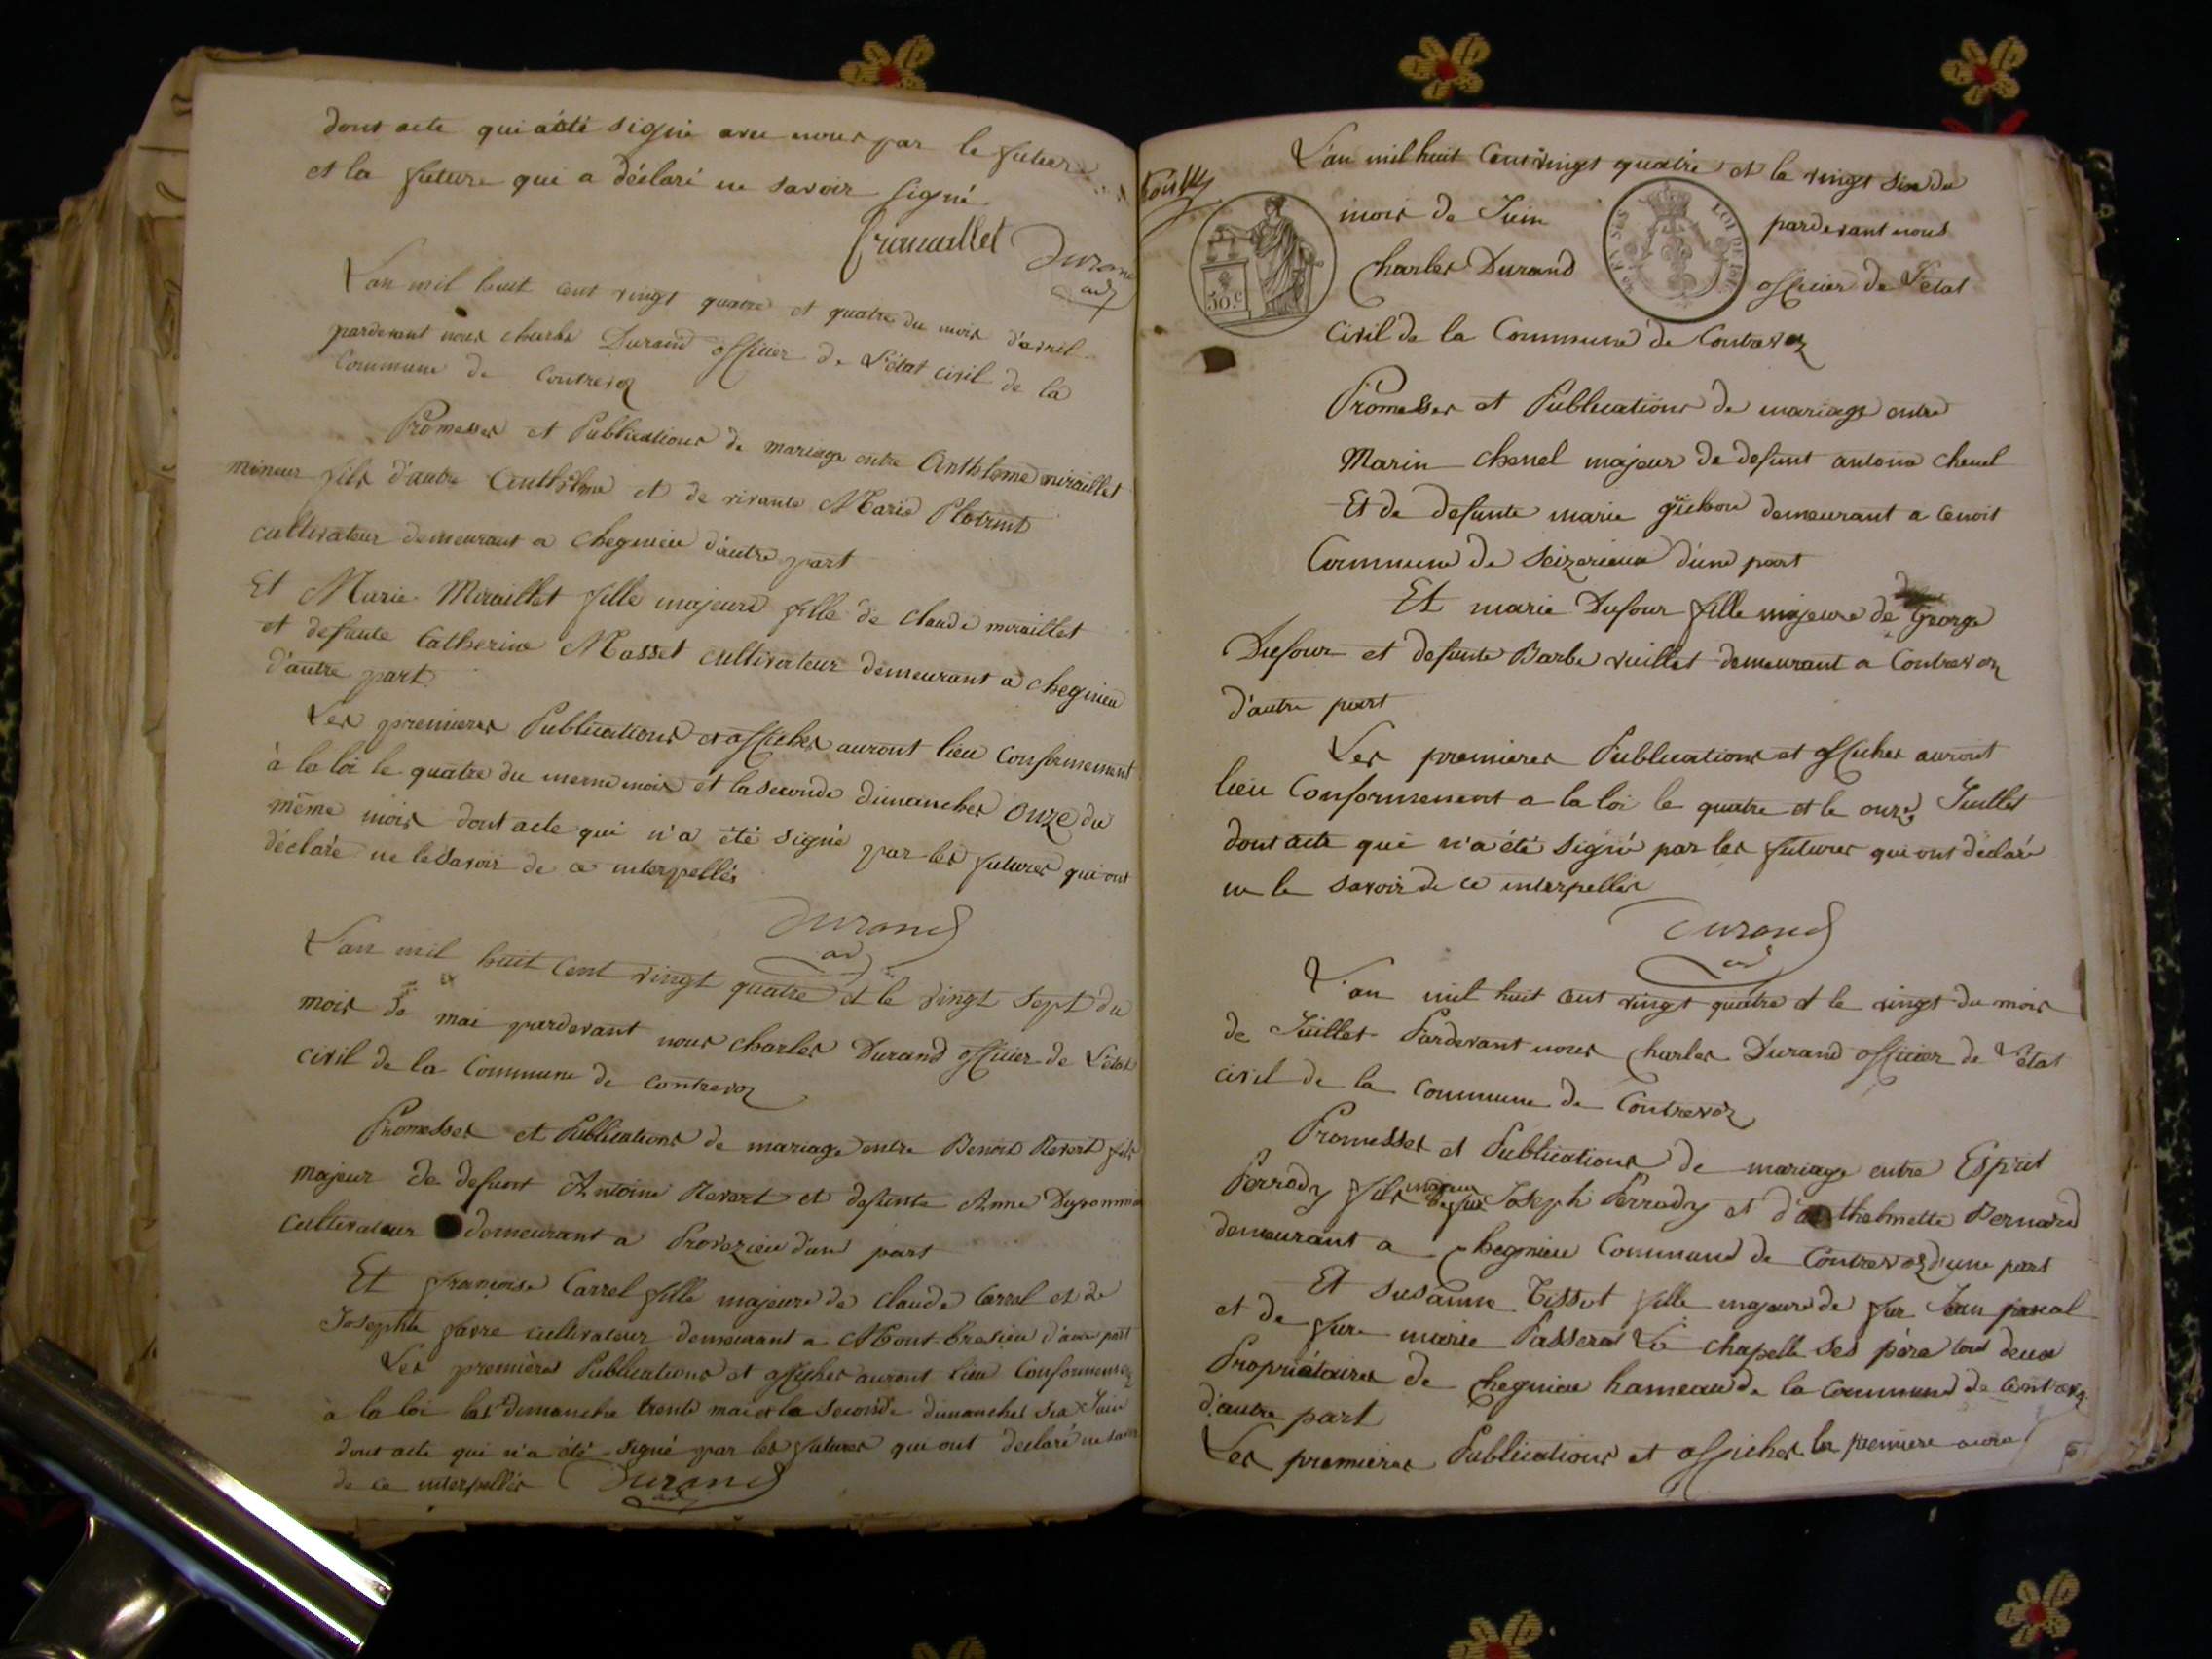 dont acte qui a été signé avec nous par le futur
et la future qui a déclaré ne savoir signé.
Durand
adj
L'an mil huit cent vingt quatre et quatre du mois d'avril
pardevant nous charles Durand officier de L'état civil de la
Commune de Contrevoz
Promesses et Publications de mariage entre Anthelme miraillet
mineur fils d'autre Anthelme et de vivante Marie
cultivateur demeurant a chegnieu d'autre part
Et Marie Miraillet fille majeure fille de claude miraillet
et defunte Catherine Masset cultivateur demeurant a chegnieu
d'autre part
Les premieres Publications et affiches auront lieu Conformement
à la loi le quatre du meme mois et la seconde dimanches onze du
même mois dont acte qui n'a été signé par les futures qui ont
déclaré ne le savoir de ce interpellés
Durand
ad
L'an mil huit cent vingt quatre et le vingt sept du
mois de mai pardevant nous charles Durand officier de L'état
civil de la Commune de contrevoz
Promesses et Publications de mariage entre Benoit Revert fils
majeur de defunt Antoine Revert et defunte Anne
cultivateur demeurant a Provezieu d'une part
Et françoise Carrel fille majeure de claude Carrel et de
Josephte favre cultivateur demeurant a Mont-bresieu d'autre part
Les premières Publications et affiches auront lieu Conformement
à la loi les dimanche trente mai et la seconde dimanches six Juin
dont acte qui n'a été signé par les futures qui ont declaré ne savoir
de ce interpellés Durand
adj
L'an mil huit Cent vingt quatre et le vingt six du
mois de Juin pardevant nous
Charles Durand officier de L'état
50.c
LOI DE 1816
civil de la Commune de Contrevoz
Promesses et Publications de mariage entre
Marin chenel majeur de defunt antoine chenel
Et de defunte marie guchon demeurant a cenoit
Commune de Seizerieux d'une part
Et marie Dufour fille majeure de George
Dufour et defunte Barbe vuillet demeurant a Contrevoz
d'autre part
Les premieres Publications et affiches auront
lieu Conformement a la loi le quatre et le onze Juillet
dont acte qui n'a été signé par les futures qui ont déclaré
ne le savoir de ce interpellés
Durand
ad
L'an mil huit cent vingt quatre et le vingt du mois
de Juillet Pardevant nous Charles Durand officier de L'état
civil de la Commune de Contrevoz
Promesses et Publications de mariage entre Esprit
Perrody fils majeur de feu Joseph Perrody et d'anthelmette Bernard
demeurant a Chegnieu Commune de Contrevoz d'une part
Et Susanne Tissot fille majeure de feu Jean pascal
et de fue marie Passerat La chapelle ses pére tous deux
Propriétaires de Chegnieu hameau de la Commune de Contrevoz
d'autre part
Les premières Publications et affiches la premiere aura